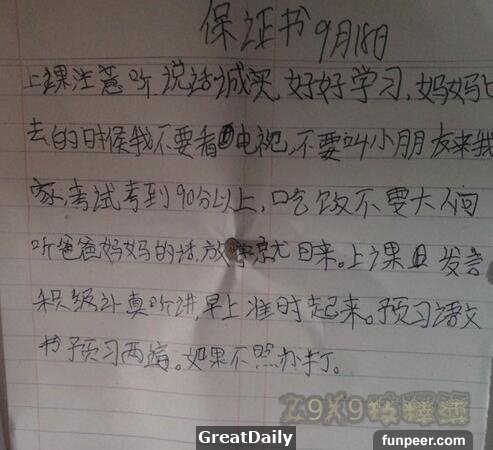 保证书 9月18日
上课注意听,说话诚买,好好学习,妈妈
去的时候我不要看电视,不要叫小朋友来我
家,考试考到90分以上,吃饭不要大人
听爸爸妈妈的话,放学就回来。上课 发言
积级认真听讲,早上准时起来。预习语文
书预习两编。如果不照办打。
GreatDaily
funpeer.com